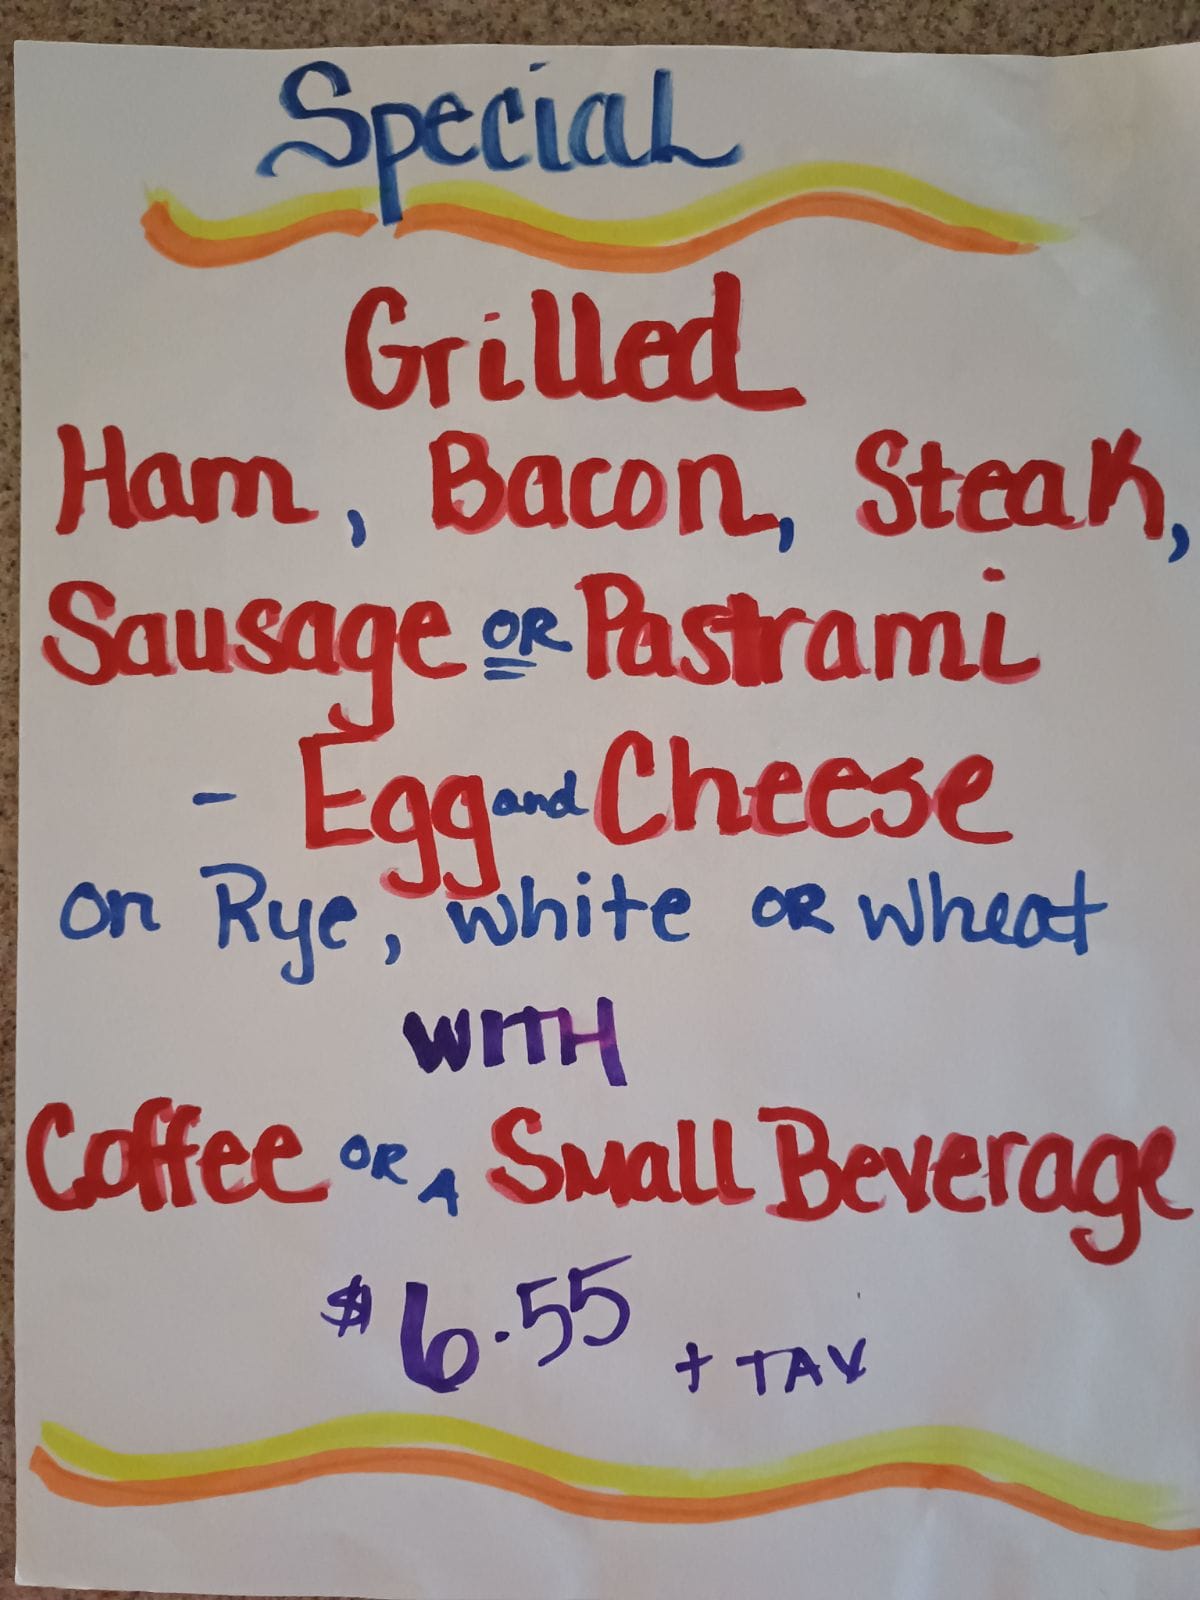 Special
Grilled
Ham, Bacon, Steak,
Sausage OR Pastrami
- Egg and Cheese
on Rye, white OR wheat
WITH
Coffee OR A Small Beverage
$6.55 + TAX